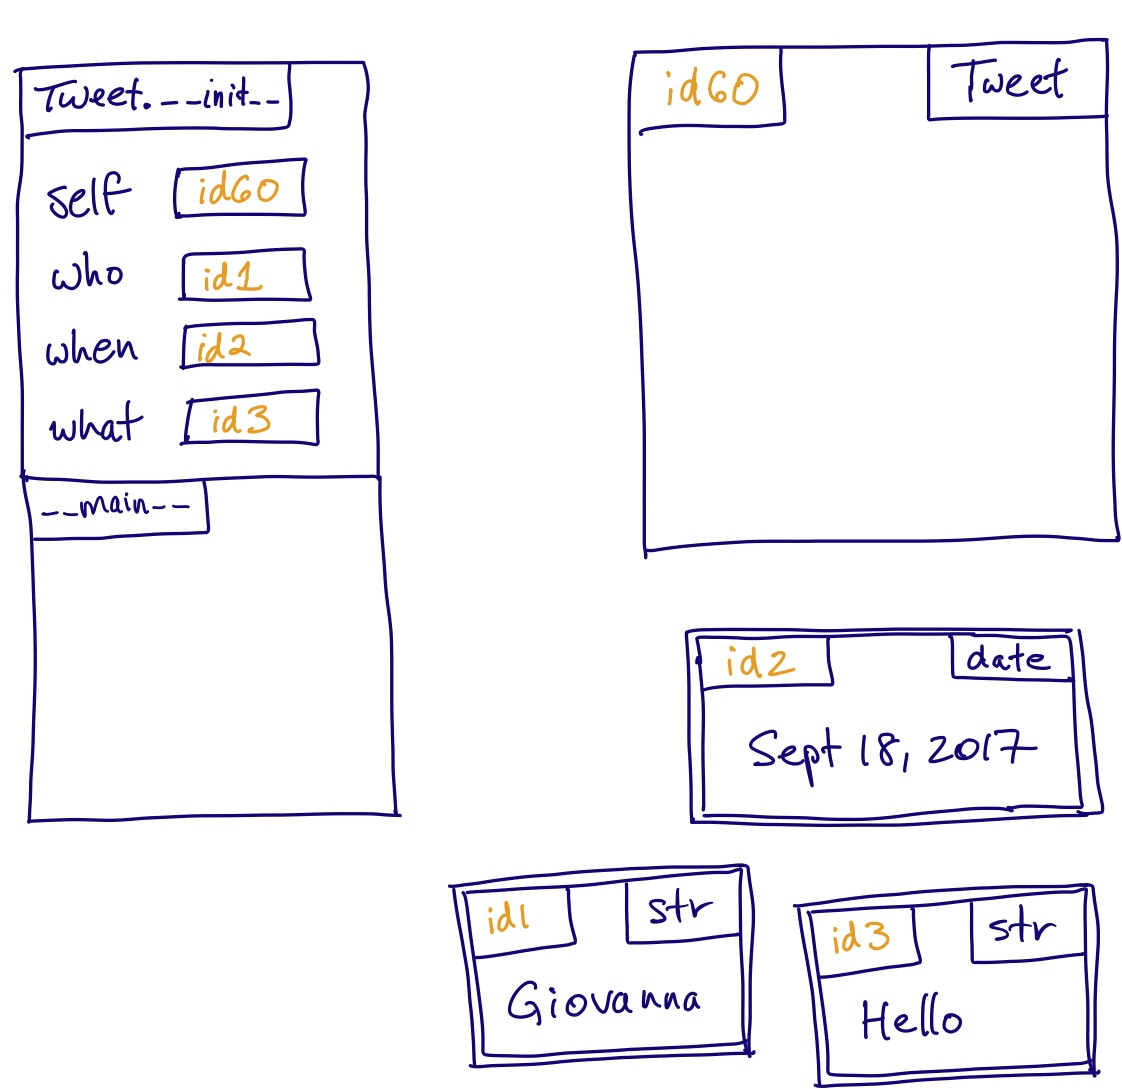 Tweet.__init__
self id60
who id1
when id2
what id3
__main__
id60 Tweet
id2 date
Sept 18, 2017
id1 str
Giovanna
id3 str
Hello